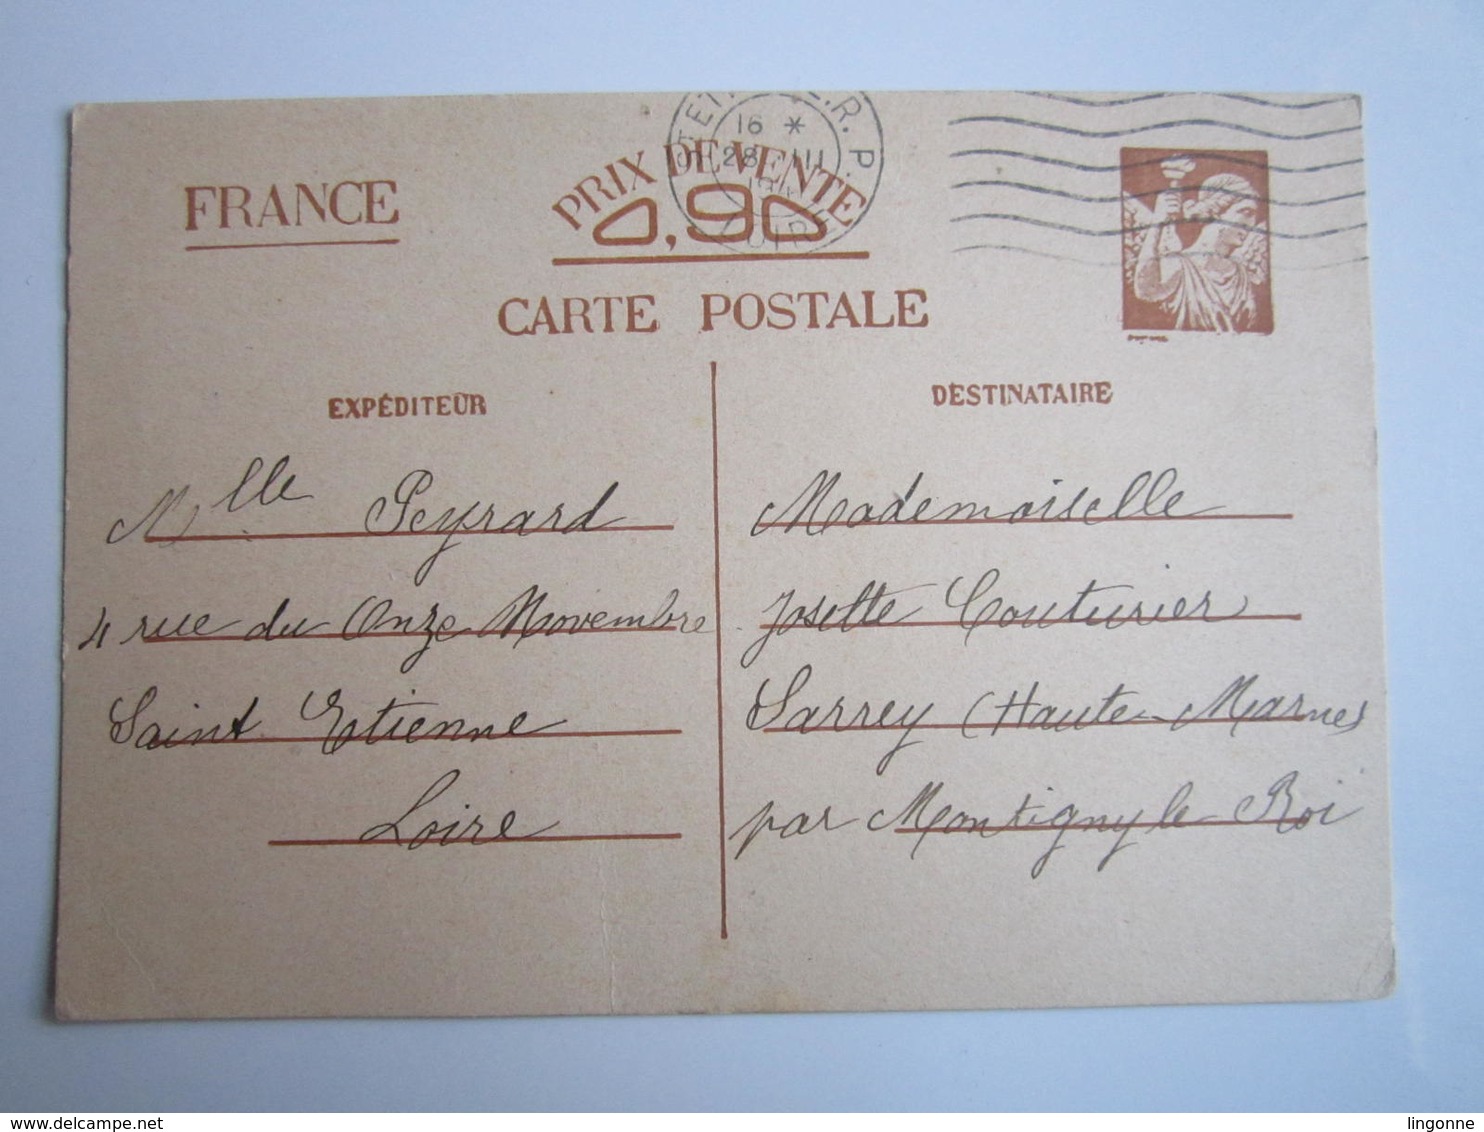 FRANCE
PRIX DE VENTE
0,90
CARTE POSTALE
R.P.
16 *
28 III
LOIRE
EXPÉDITEUR
Mlle Peyrard
4 rue du Onze Novembre
Saint Etienne
Loire
DESTINATAIRE
Mademoiselle
Josette Couturier
Sarrey (Haute-Marne)
par Montigny le Roi
delcampe.net
lingonne